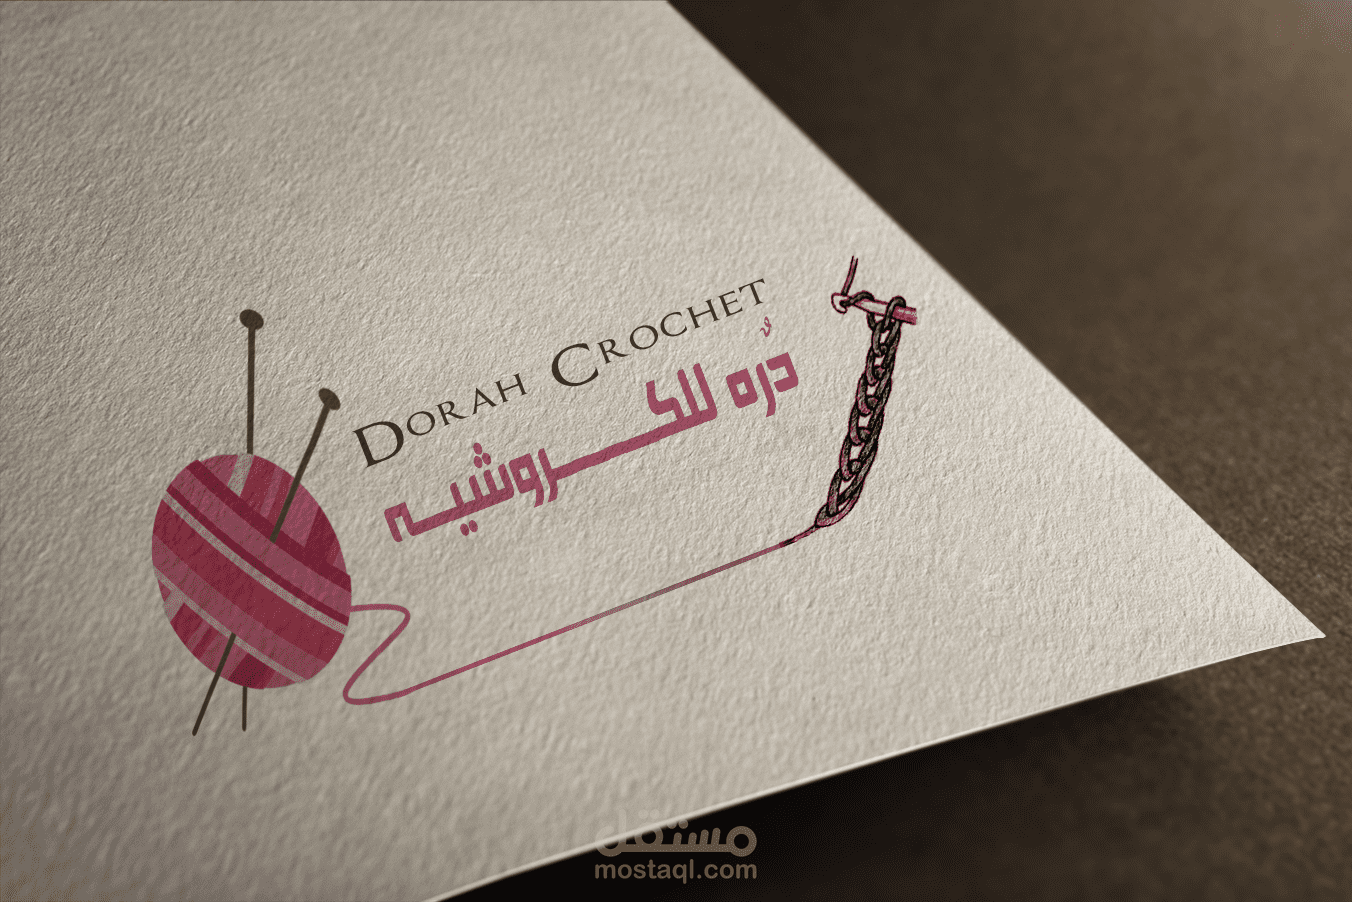 DORAH CROCHET
دُره للكروشيه
مستقل
mostaql.com